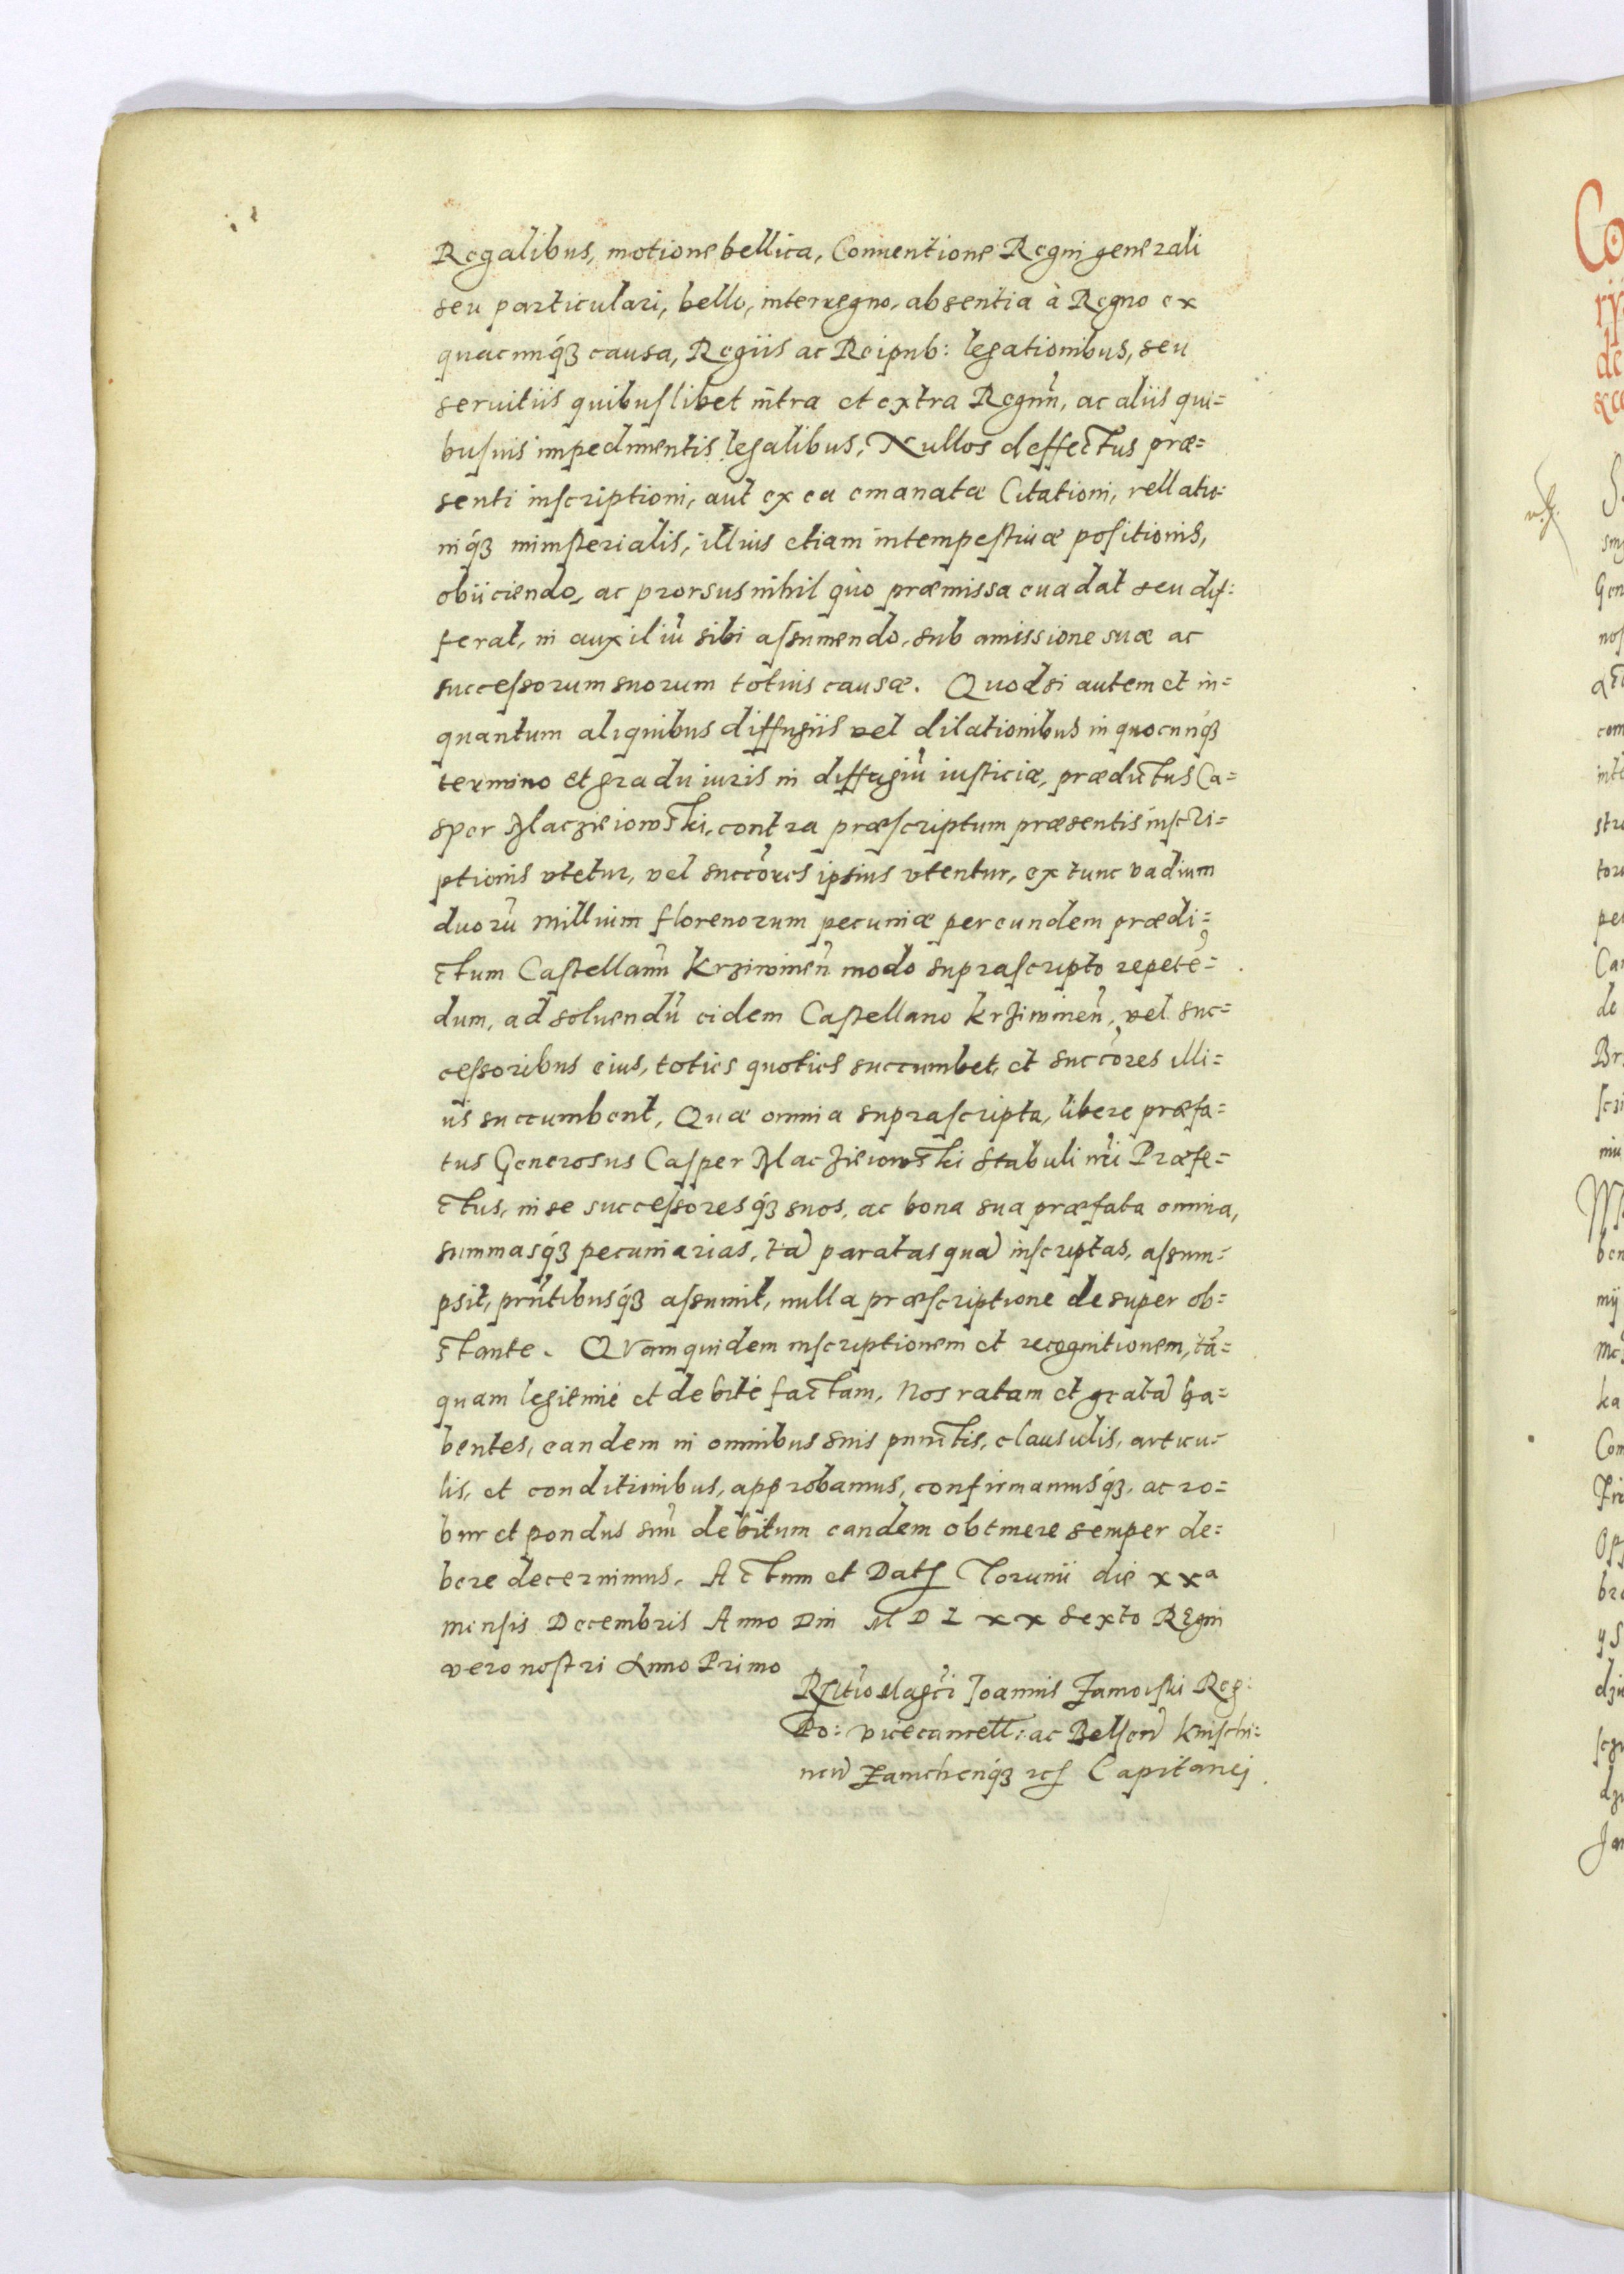 Regalibus, motione bellica, Conuentione Regni generali
seu particulari, bello, interregno, absentia à Regno ex
quacunq́ꝫ causa, Regiis ac Reipub: legationibus, seu
seruitiis quibuslibet intra et extra Regnũ, ac aliis qui=
busuis impedimentis legalibus, Nullos deffectus præ=
senti inscriptioni, aut ex ea emanatæ Citationi, rellatio=
niq́ꝫ ministerialis, illius etiam intempestiuæ positionis,
obiiciendo, ac prorsus nihil quo præmissa euadat seu dif=
ferat, in auxiliũ sibi assumendo, sub amissione suæ ac
successorum suorum totius causæ. Quodsi autem et in=
quantum aliquibus diffugiis vel dilationibus in quocunq́ꝫ
termino et gradu iuris in diffugiũ iusticiæ, prædictus Ca=
sper Maczieiowski, contra præscriptum præsentis inscri=
ptionis vtetur, vel succõres ipsius vtentur, ex tunc vadium
duorũ millium florenorum pecuniæ per eundem prædi=
ctum Castellanũ Krziwineñ modo suprascripto repetẽ=
dum, ad soluendũ eidem Castellano Krziwineñ, vel suc=
cessoribus eius, toties quoties succumbet, et succõres illi=
us succumbent, Quæ omnia suprascripta, libere præfa=
tus Generosus Casper Maczieiowski Stabuli nr̃i Præfe=
ctus, in se successoresq́ꝫ suos, ac bona sua præfata omnia,
summasq́ꝫ pecuniarias, tã paratas quã inscriptas, assum=
psit, prñtibusq́ꝫ assumit, nulla præscriptione desuper ob=
stante. Quam quidem inscriptionem et recognitionem, tã=
quam legitimè et debitè factam, Nos ratam et gratã ha=
bentes, eandem in omnibus suis punctis, clausulis, articu=
lis, et conditionibus, approbamus, confirmamusq́ꝫ, ac ro=
bur et pondus suũ debitum eandem obtinere semper de=
bere decernimus. Actum et Datꝭ Torunii die xxª
mensis Decembris Anno Dni M D L xx Sexto Regni
vero nostri Anno Primo
Rl̃tio Mag̃ci Joannis Zamoiski Reg:
Po: vicecancell: ac Belseñ Knischi=
neñ Zamchenq́ꝫ ꝛcꝭ Capitanej.